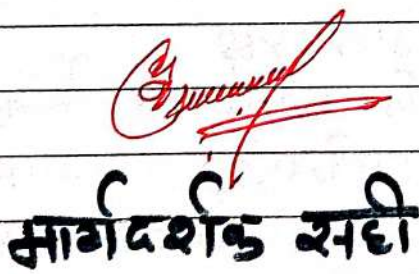 मार्गदर्शक सही